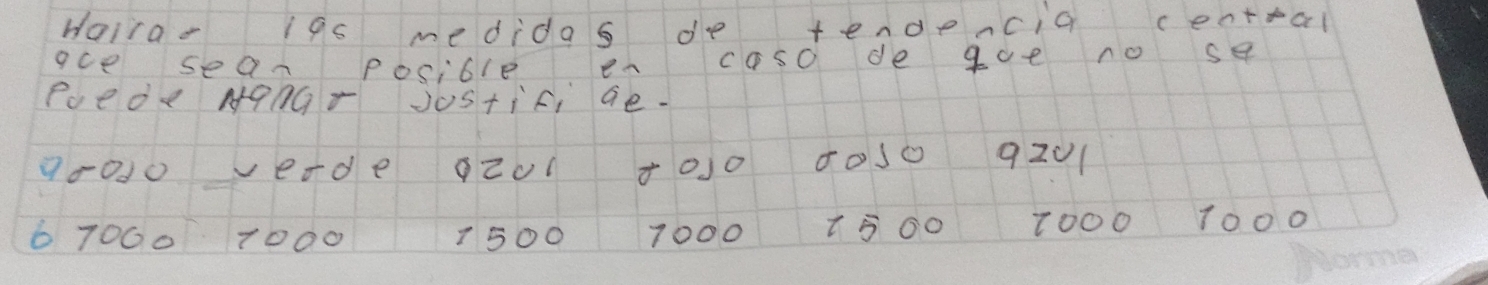 Hallar las medidas de tendencia central
que sean posible en caso de que no se
puede Hallar justifique.
a rojo verde azul rojo rojo azul
b 1000 1000 1500 1000 1500 1000 1000
Norma